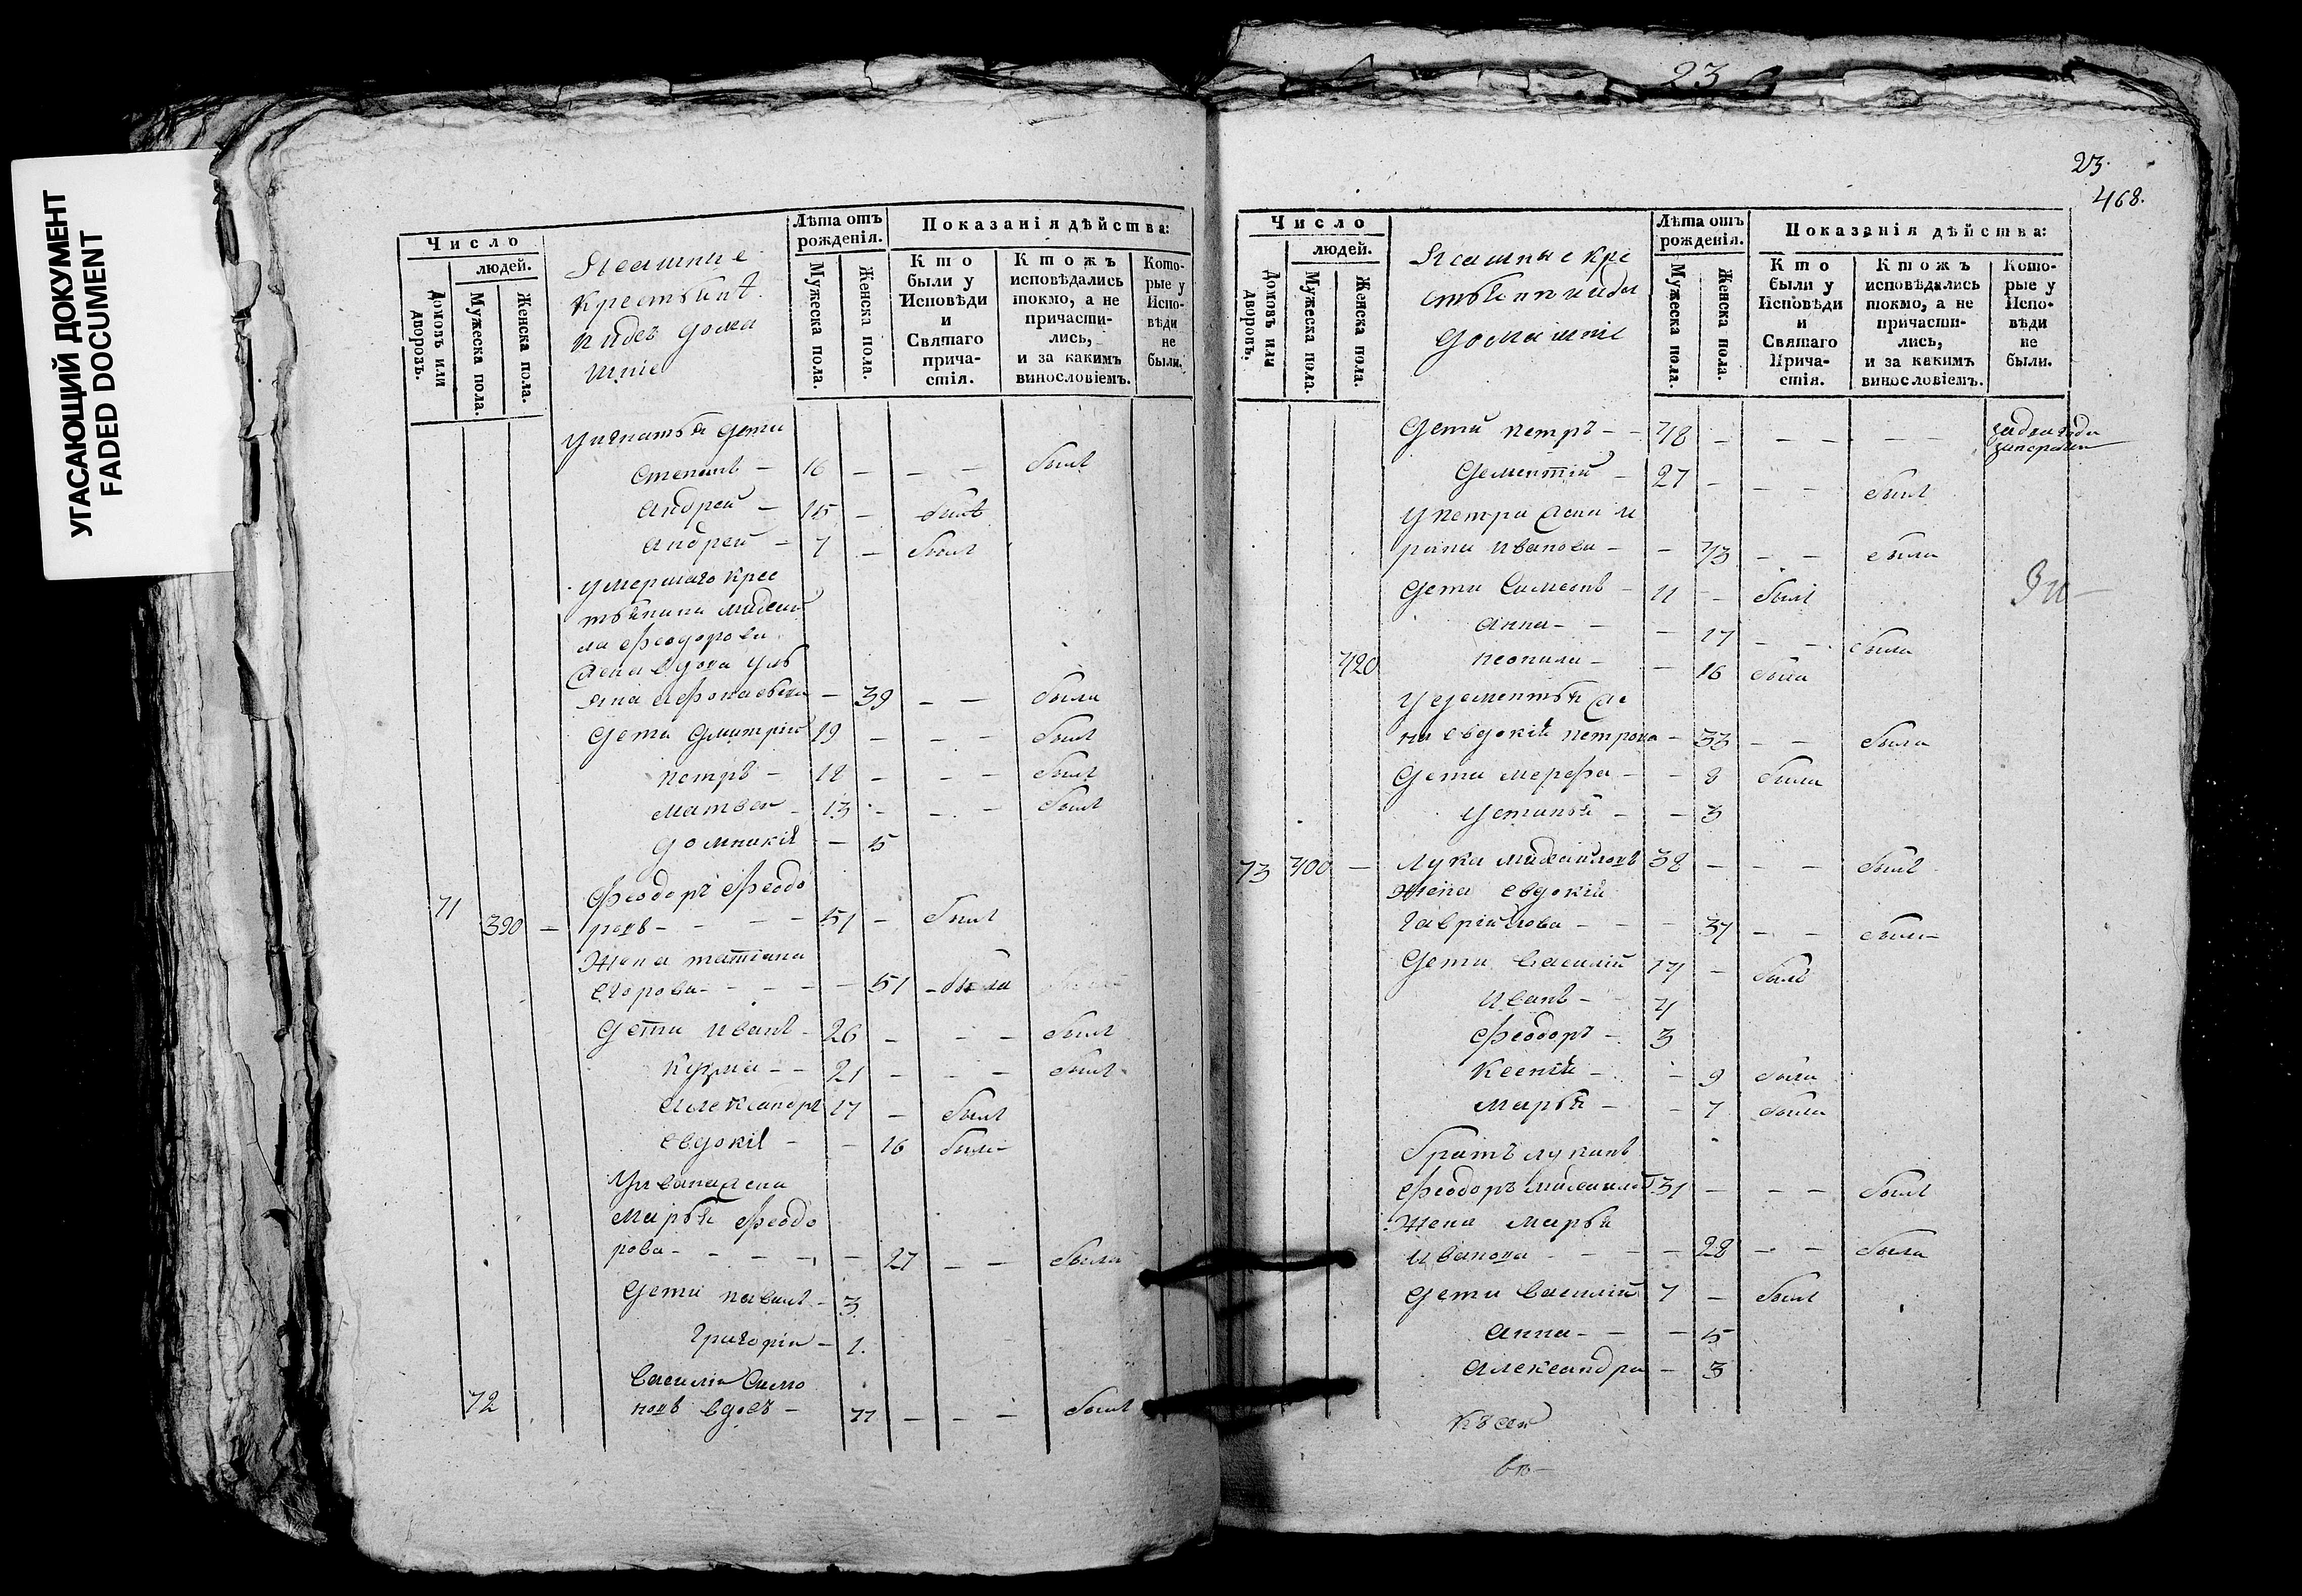 УГАСАЮЩИЙ ДОКУМЕНТ
FADED DOCUMENT
Число
людей.
Домовъ или дворовъ.
Мужеска пола.
Женска пола.
крестьянѣ
Лѣта отъ рожденія.
Мужеска пола.
Женска пола.
Показанія дѣйства:
Кто были у Исповѣди и Святаго причастія.
Ктожъ исповѣдались токмо, а не причастились, и за какимъ винословіемъ.
Которые у Исповѣди не были.
Уигнатья дети
Степанъ – 16 – – – былъ
Андрей – 15 – былъ
Андрей – 7 – былъ
умершаго крес
тьянина михаи
ла Феодорова
жена вдова уль
яна – 39 – – была
Дети Дмитрий 19 – – – былъ
петръ – 18 – – – былъ
матвей – 13 – – – былъ
домникія – 5
71 Феодоръ Феодо
390 – ровъ – – – 51 – былъ
Жена татіана
Егорова – – – – 51 – была
Дети иванъ – 26 – – – былъ
Кузма – – 21 – – – былъ
александръ 17 – былъ
Евдокія – – 16 была
Уивана жена
марья Феодо
рова – – – – – 27 – – была
Дети павелъ – 3
григорій – 1.
Василій Симо
72 новъ вдовъ – 77 – – – былъ
23
23.
468.
Число
людей.
Домовъ или дворовъ.
Мужеска пола.
Женска пола.
Ясашные кре
домашніе
Лѣта отъ рожденія.
Мужеска пола.
Женска пола.
Показанія дѣйства:
Кто были у Исповѣди и Святаго Причастія.
Ктожъ исповѣдались токмо, а не причастились, и за какимъ винословіемъ.
Которые у Исповѣди не были.
Дети петръ – – 48 – – – – –
Дементій – 27 – – – былъ
У петра жена и
рина иванова – – 43 – – была
Дети Симеонъ – 11 – былъ
анна – – – 17 – – была
420 неонила – – 16 была
У дементья же
на евдокія петрова – 33 – – была
Дети марфа – – 8 была
Устинья – – 3
73 400 – Лука михайловъ 38 – – – былъ
Жена евдокія
гаврійлова – – – 37 – – была
Дети василій 14 – былъ
иванъ – 4
Феодоръ – 3
Ксенія – – 9 была
марья – – 7 была
братъ лукинъ
Феодоръ михайловъ 31 – – – былъ
Жена марья
иванова – – – 28 – – была
Дети василій 7 – былъ
анна – – – 5
александра – 3